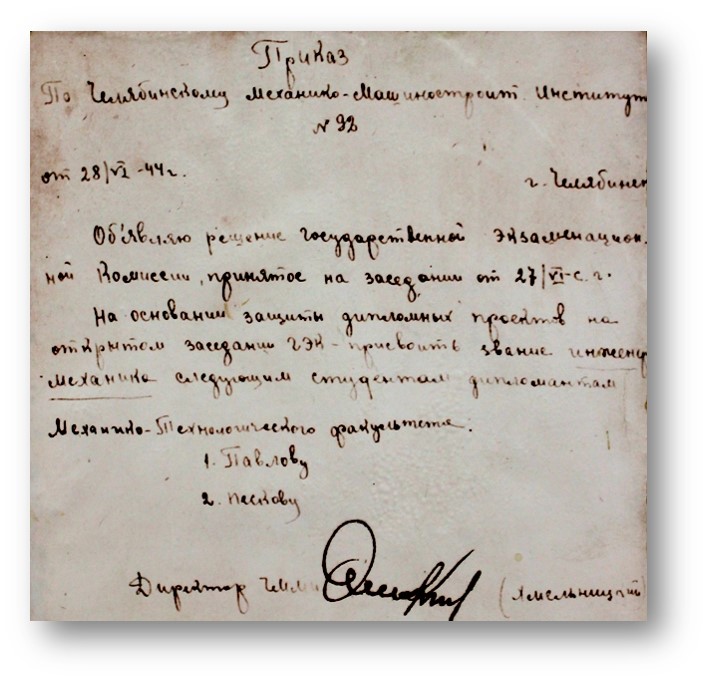 Приказ
По Челябинскому Механико-Машиностроит. Институт
№ 92
от 28/VI-44г.
г. Челябинск
Об'являю решение государственной экзаменацион-
ной Комиссии, принятое на заседании от 27/VI-с.г.
На основании защиты дипломных проектов на
открытом заседании ГЭК - присвоить звание инженер
механика следующим студентам дипломантам
Механико-Технологического факультета.
1. Павлову
2. Пескову
Директор ЧММИ (Хмельницкий)